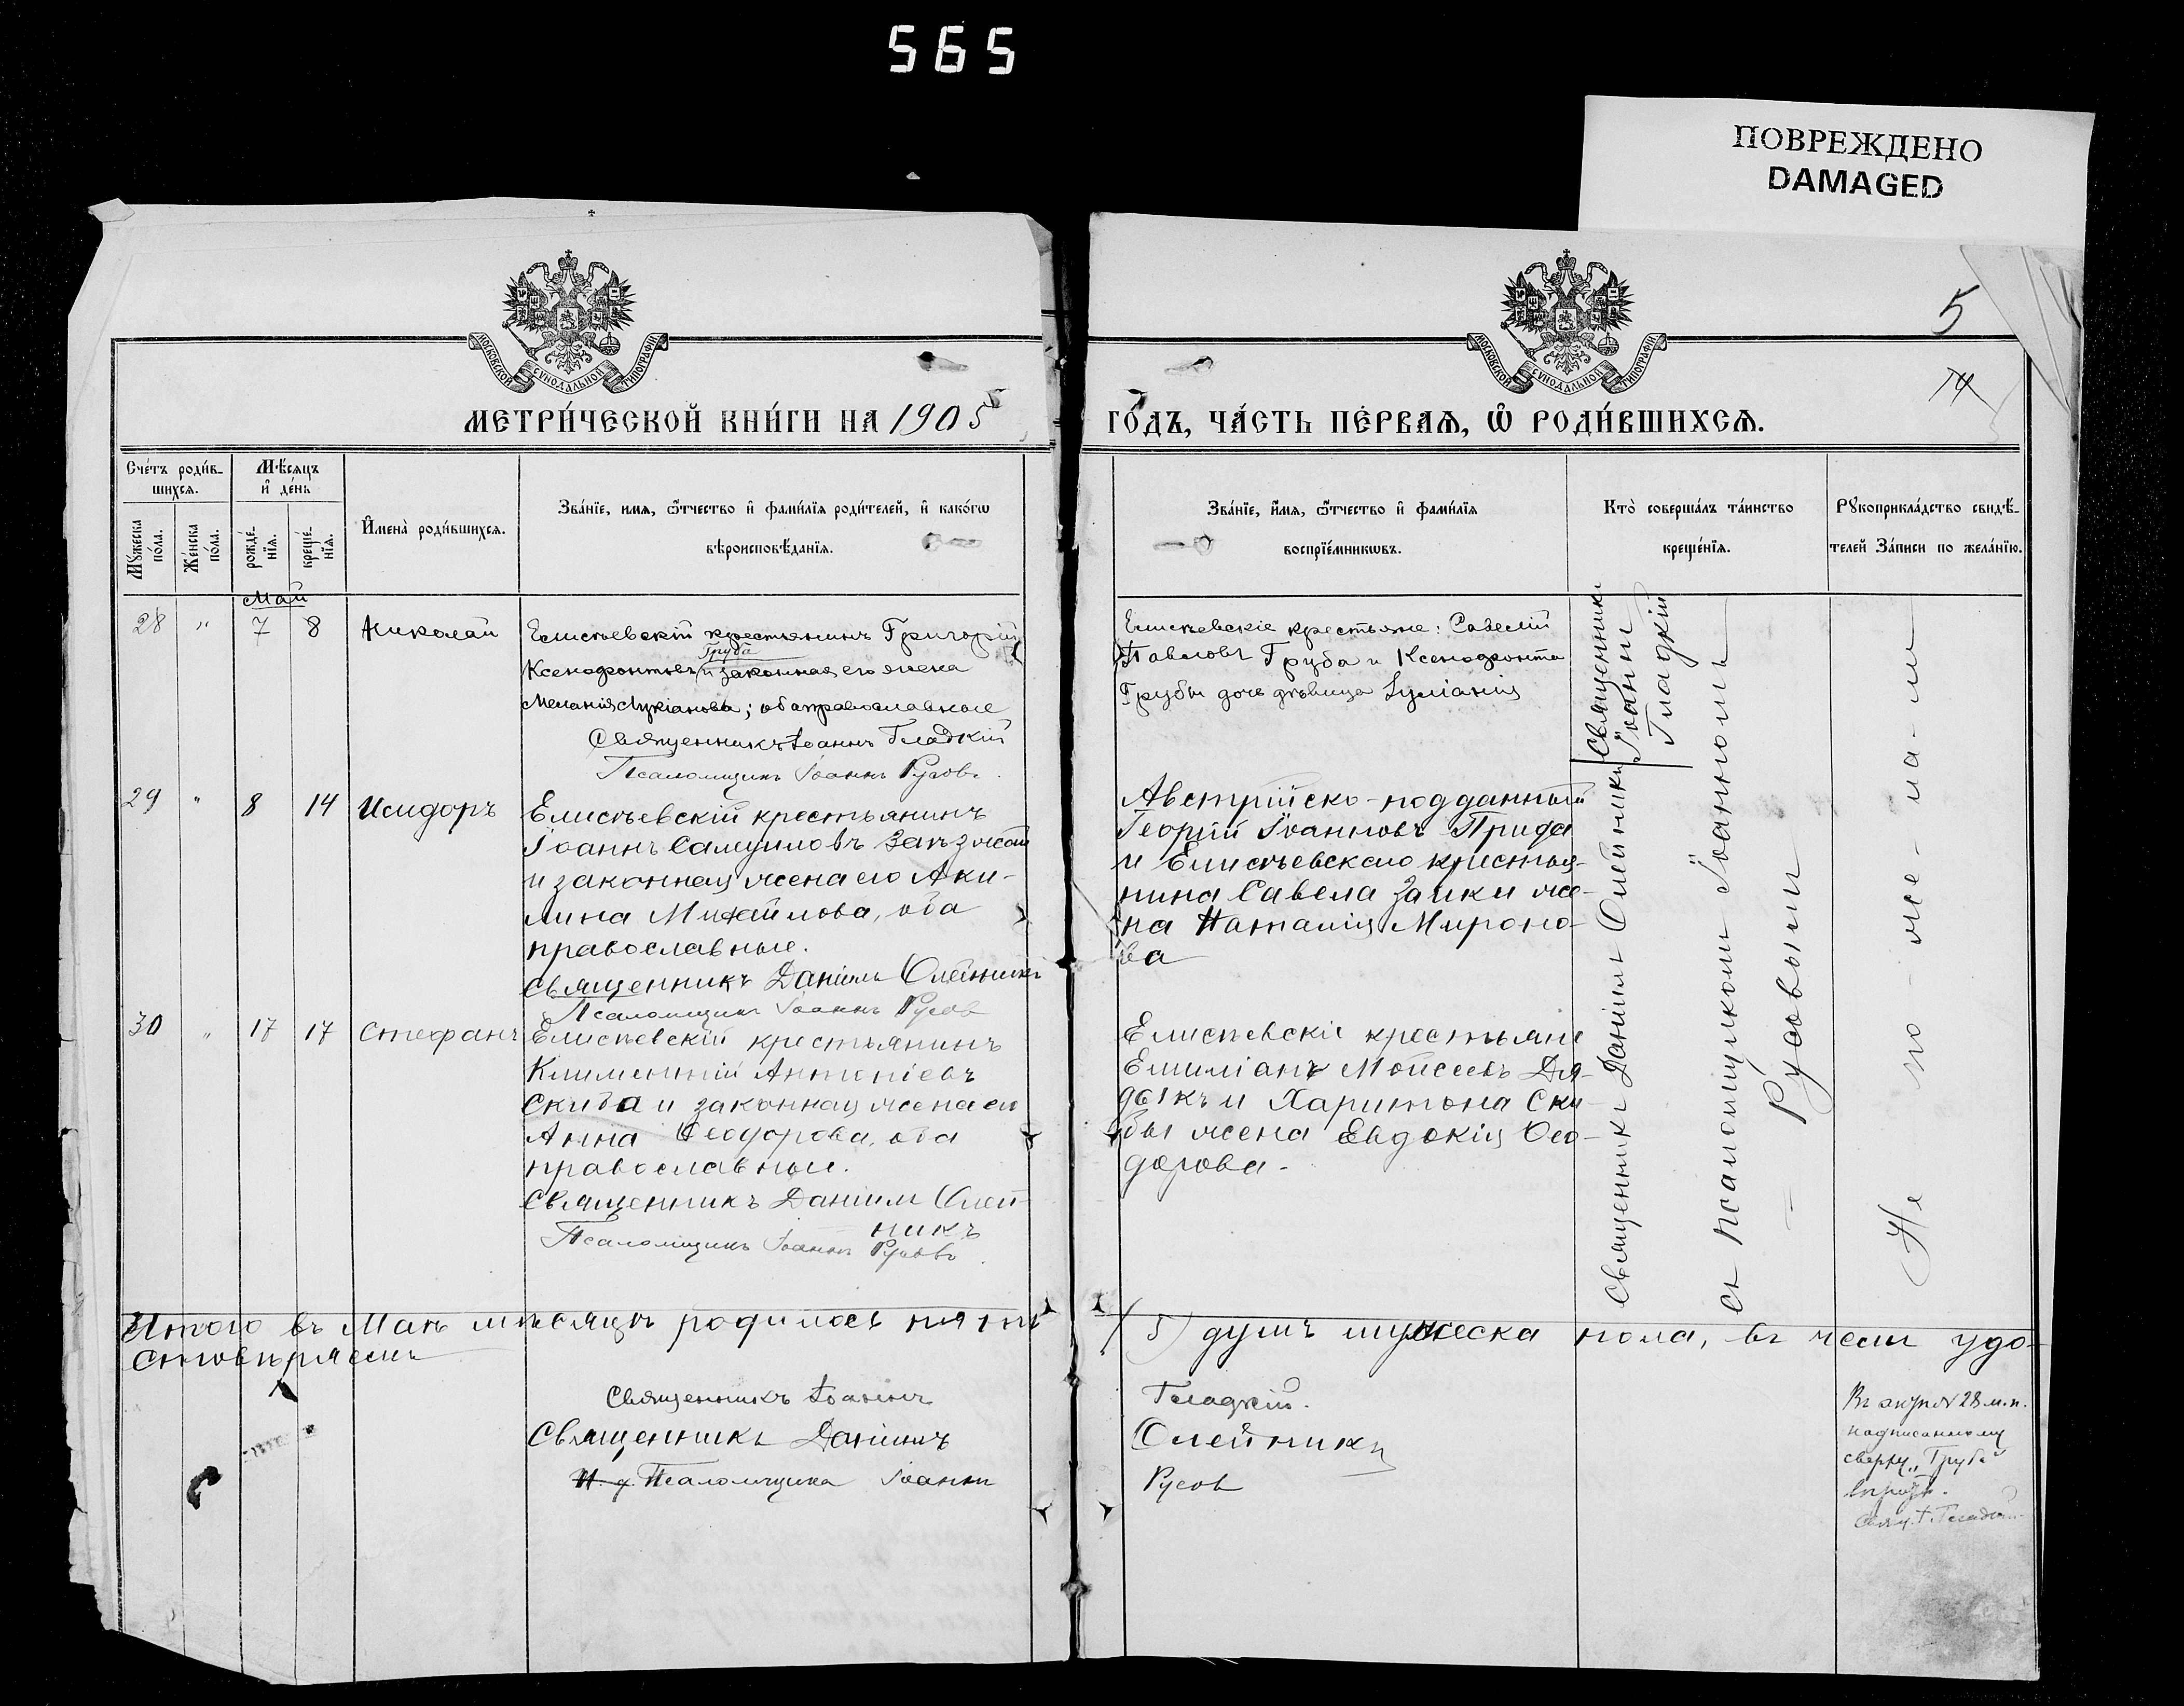 565
ПОВРЕЖДЕНО
DAMAGED
5
14
МОСКОВСКОЙ СѴНОДАЛЬНОЙ ТИПОГРАФІИ
МОСКОВСКОЙ СѴНОДАЛЬНОЙ ТИПОГРАФІИ
МЕТРИ́ЧЕСКОЙ КНИ́ГИ НА 1905 ГО́ДЪ, ЧА́СТЬ ПЕ́РВАѦ, Ѡ҆ РОДИ́ВШИХСѦ.
Сче́тъ роди́в-
шихсѧ.
Мꙋ́жеска
по́ла.
Же́нска
по́ла.
Мѣ́сѧцъ
и҆ де́нь
рожде́-
нїѧ.
креще́-
нїѧ.
И҆мена̀ роди́вшихсѧ.
Зва́нїе, имѧ, ѻ҆́тчество и҆ фами́лїѧ роди́телей, и҆ како́гѡ
вѣроисповѣ́данїѧ.
Зва́нїе, и҆́мѧ, ѻ҆́тчество и҆ фами́лїѧ
воспрїе́мникѡвъ.
Кто̀ соверша́лъ та́инство
креще́нїѧ.
Рꙋкоприкла́дство свидѣ́-
телей За́писи по жела́нїю.
Май
28 " 7 8 Николай
Елисѣевскій крестьянинъ Григорій
Груба
Ксенофонтовъ и законная его жена
Меланія Лукіанова; оба православные
Священникъ Іоаннъ Гладкій
Псаломщикъ Іоаннъ Русовъ.
Елисѣевскіе крестьяне: Савелій
Павловъ Груба и Ксенофонта
Грубы дочь дѣвица Іуліанія
Священникъ
Іоаннъ
Гладкій
29 " 8 14 Исидоръ
Елисѣевскій крестьянинъ
Іоаннъ Самуиловъ
и законная жена его Аки-
лина Михайлова, оба
православные.
Священникъ Даніилъ Олейникъ
Псаломщикъ Іоаннъ Русов
Австрійско-подданный
Георгій Іоанновъ Прида
и Елисѣевскаго крестья-
нина Савела Заики же-
на Наталія Мироно-
ва
30 " 17 17 Стефанъ
Елисѣевскій крестьянинъ
Климентій Антоніевъ
Скиба и законная жена его
Анна Ѳеодорова, оба
православные.
Священникъ Даніилъ Олей-
никъ
Псаломщикъ Іоаннъ Русовъ.
Елисѣевскіе крестьяне
Емиліанъ Мойсеевъ Дя-
дыкъ и Харитона Ски-
бы жена Евдокія Ѳео-
дорова.
Священникъ Даніилъ Олейникъ
съ псаломщикомъ Іоанномъ
Русовымъ
Не по-же-ла-ли
Итого въ Маѣ мѣсяцѣ родилось пять (5) душъ мужеска пола, въ чемъ удо-
стовѣряемъ
Священникъ Іоаннъ Гладкій.
Священникъ Даніилъ Олейникъ
И. д. Псаломщика Іоаннъ Русов
Въ актѣ № 28 м.п.
надписанному
сверху „Груба“
вѣрить.
Свящ. І. Гладкій